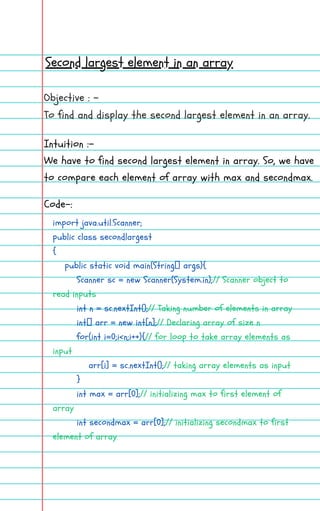 Second largest element in an array
Objective : -
To find and display the second largest element in an array.
Intuition :-
We have to find second largest element in array. So, we have
to compare each element of array with max and secondmax.
Code-:
import java.util.Scanner;
public class secondlargest
{
public static void main(String[] args){
Scanner sc = new Scanner(System.in);// Scanner object to
read inputs
int n = sc.nextInt();// Taking number of elements in array
int[] arr = new int[n];// Declaring array of size n
for(int i=0;i<n;i++){// for loop to take array elements as
input
arr[i] = sc.nextInt();// taking array elements as input
}
int max = arr[0];// initializing max to first element of
array
int secondmax = arr[0];// initializing secondmax to first
element of array